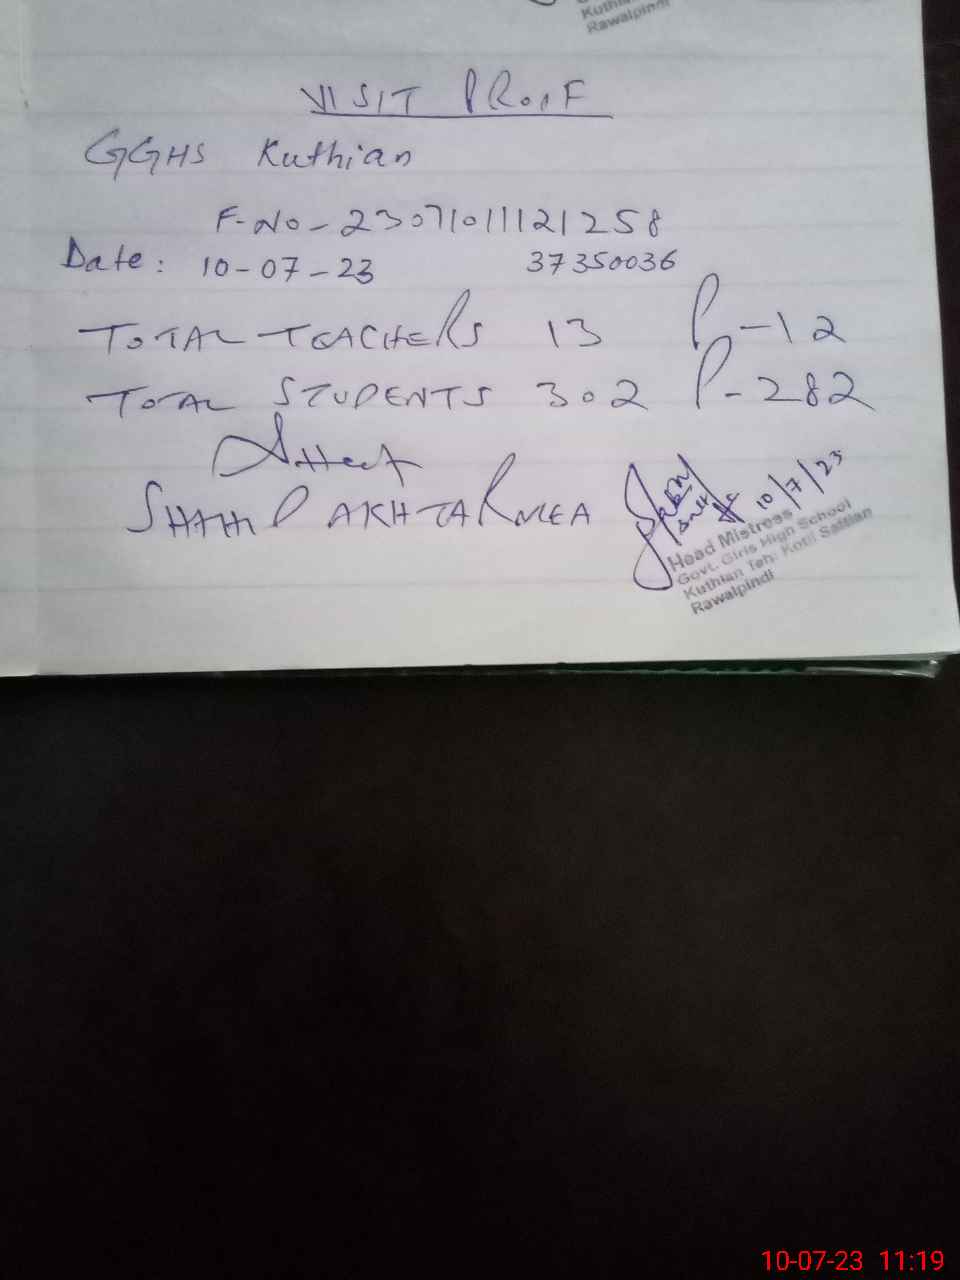 Kuthian
Rawalpindi
VISIT PROOF
GGHS Kuthian
F-No-23071011121258
Date: 10-07-23 37350036
TOTAL TEACHERS 13 P-12
TOTAL STUDENTS 302 P-282
SHAHID AKHTAR MEA
10/7/23
Head Mistress
Govt. Girls High School
Kuthian Teh: Kotli Sattian
Rawalpindi
10-07-23 11:19